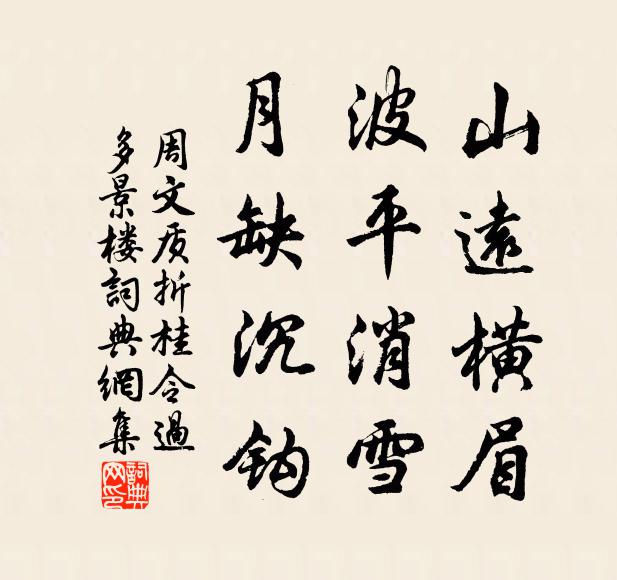 山遠横眉
波平消雪
月缺沉钩
周文质折桂令過
多景楼詞典網集
詞典网印